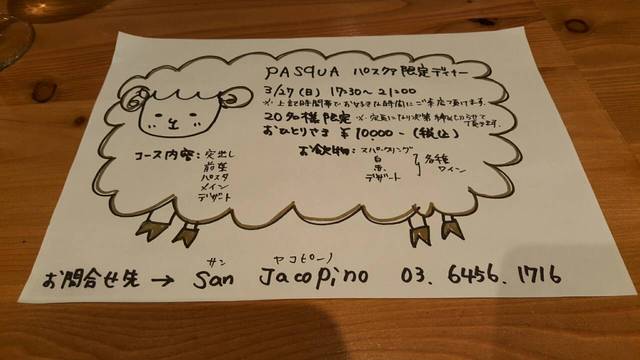 PASQUA パスクア 限定ディナー
3/27(日) 17:30〜21:00
※上記時間帯でお好きな時間にご来店頂けます。
20名様限定 ※定員になり次第締め切らせて頂きます。
おひとりさま ¥10000-(税込)
コース内容: 突出し
前菜
パスタ
メイン
デザート
お飲物: スパークリング
白
赤
デザート
各種ワイン
サン ヤコピーノ
お問合せ先 → San Jacopino 03.6456.1716